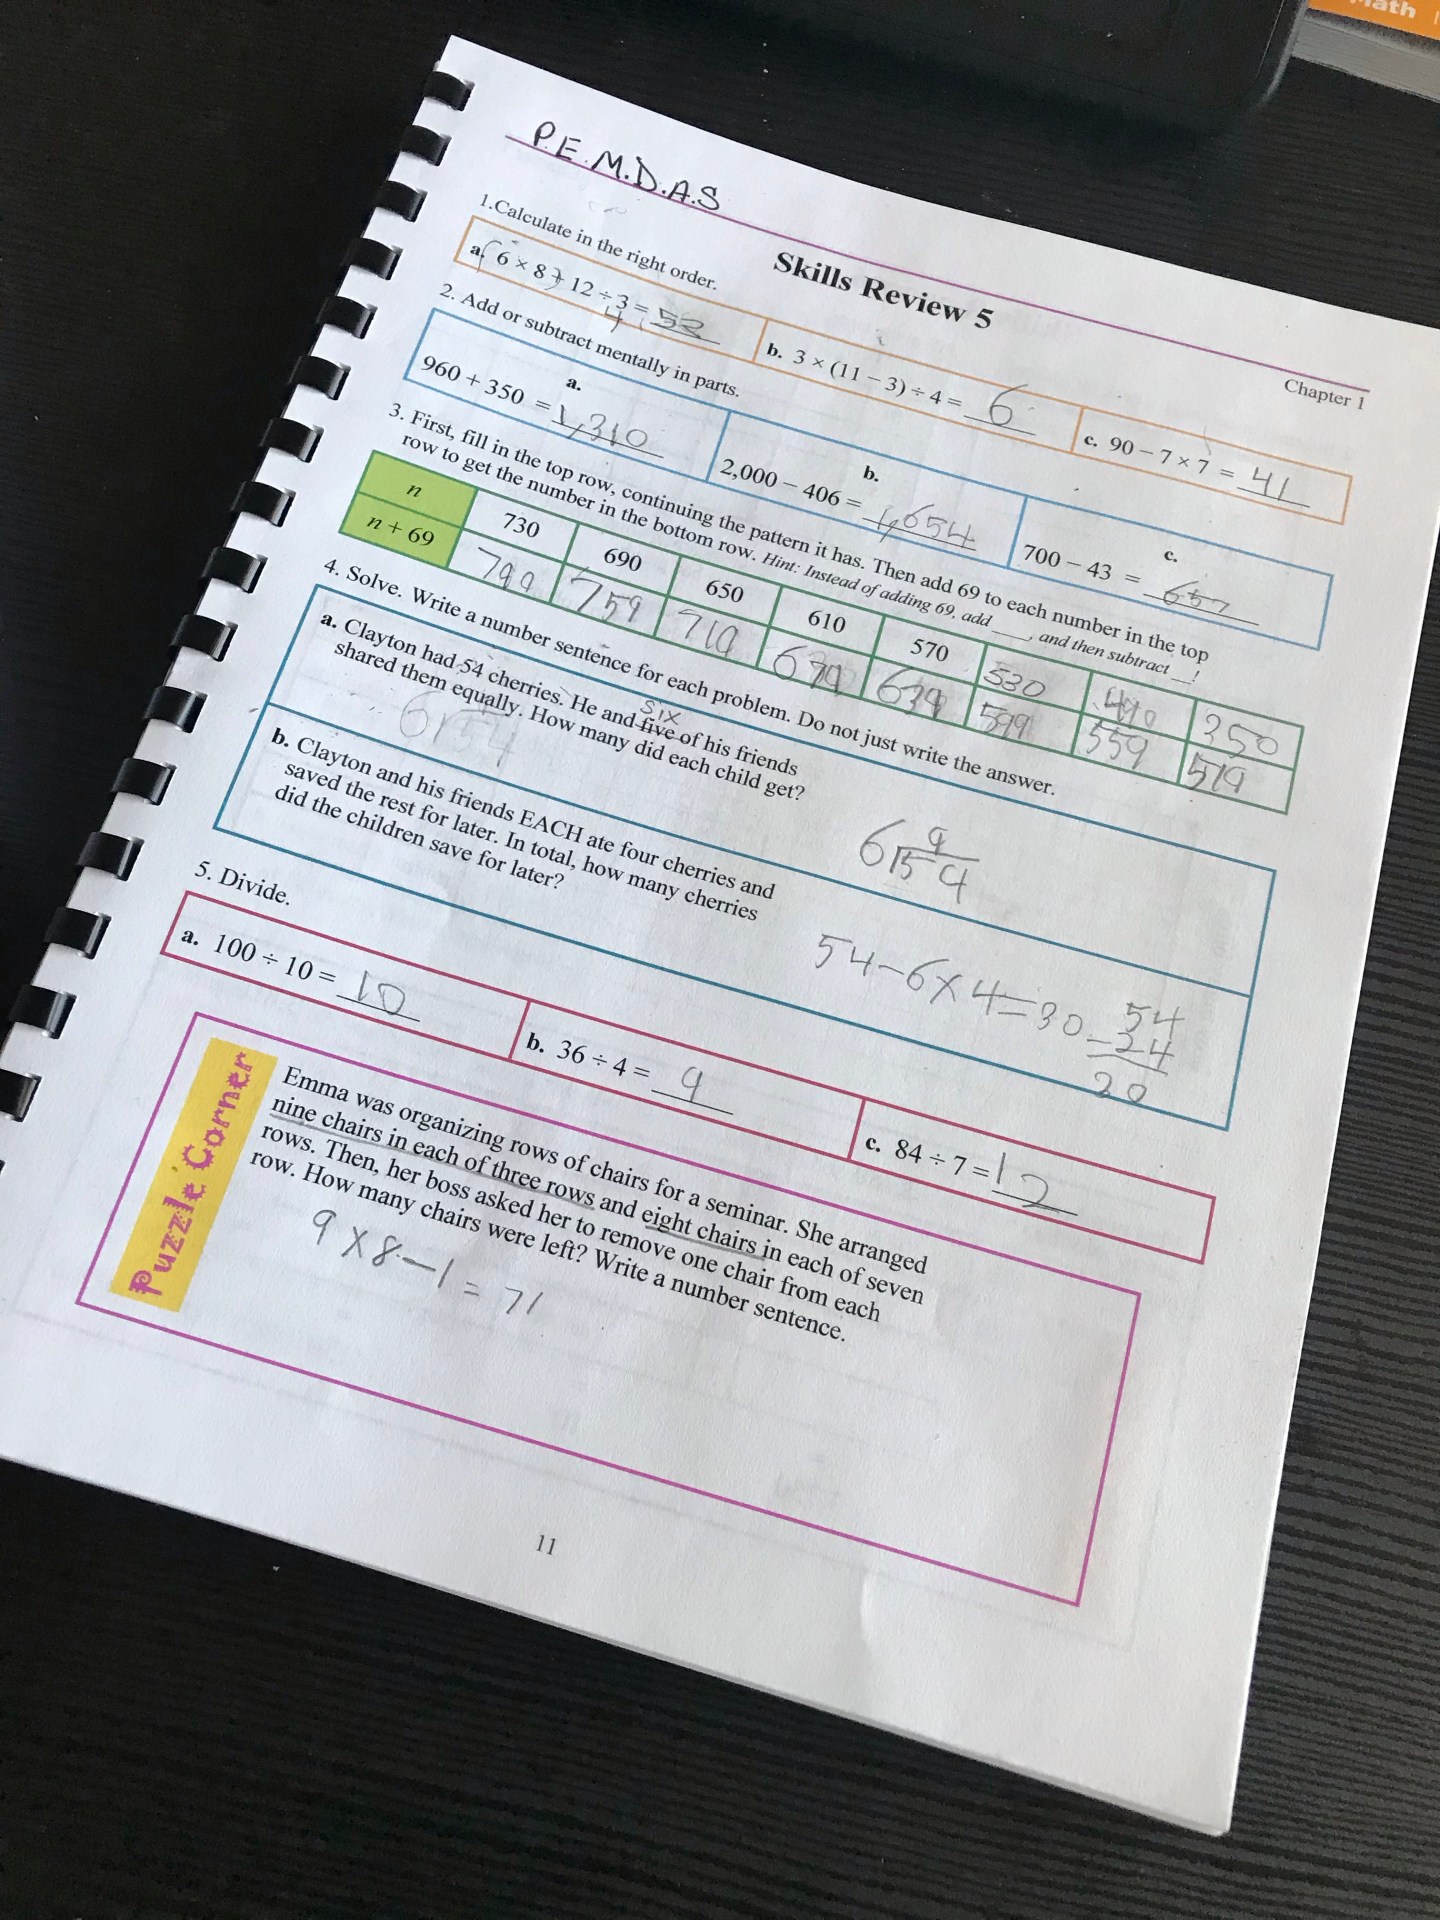 Math
P.E.M.D.A.S
Skills Review 5
Chapter 1
1.Calculate in the right order.
a. (6 × 8) + 12 ÷ 3 = 52
4
b. 3 × (11 − 3) ÷ 4 = 6
c. 90 − 7 × 7 = 41
2. Add or subtract mentally in parts.
a.
960 + 350 = 1,310
b.
2,000 − 406 = 1,654
c.
700 − 43 = 657
3. First, fill in the top row, continuing the pattern it has. Then add 69 to each number in the top
row to get the number in the bottom row. Hint: Instead of adding 69, add ____, and then subtract __!
n 730 690 650 610 570 530 490 350
n + 69 799 759 719 679 639 599 559 519
4. Solve. Write a number sentence for each problem. Do not just write the answer.
a. Clayton had 54 cherries. He and five of his friends
six
shared them equally. How many did each child get?
6 54
9
6 54
b. Clayton and his friends EACH ate four cherries and
saved the rest for later. In total, how many cherries
did the children save for later?
54−6×4=30
54
−24
30
5. Divide.
a. 100 ÷ 10 = 10
b. 36 ÷ 4 = 9
c. 84 ÷ 7 = 12
Puzzle Corner
Emma was organizing rows of chairs for a seminar. She arranged
nine chairs in each of three rows and eight chairs in each of seven
rows. Then, her boss asked her to remove one chair from each
row. How many chairs were left? Write a number sentence.
9 × 8 − 1 = 71
11